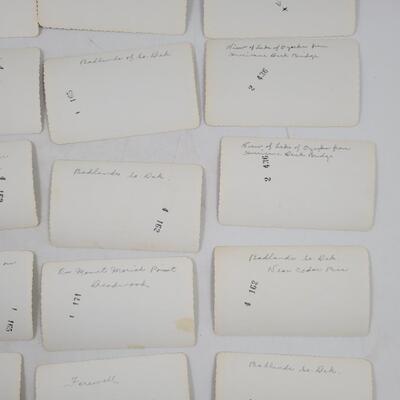 7 x
Badlands of So. Dak
1 165
View of Lake of Ozarks from
Hurricane Deck Bridge
2 436
Badlands So. Dak.
4 162
View of Lake of Ozarks from
Hurricane Deck Bridge
436 2
On Mount Moriah Point
Deadwood
1 171
Badlands So. Dak
Near Cedar Pass
4 162
1 165
4 162
Farewell
Badlands So. Dak.